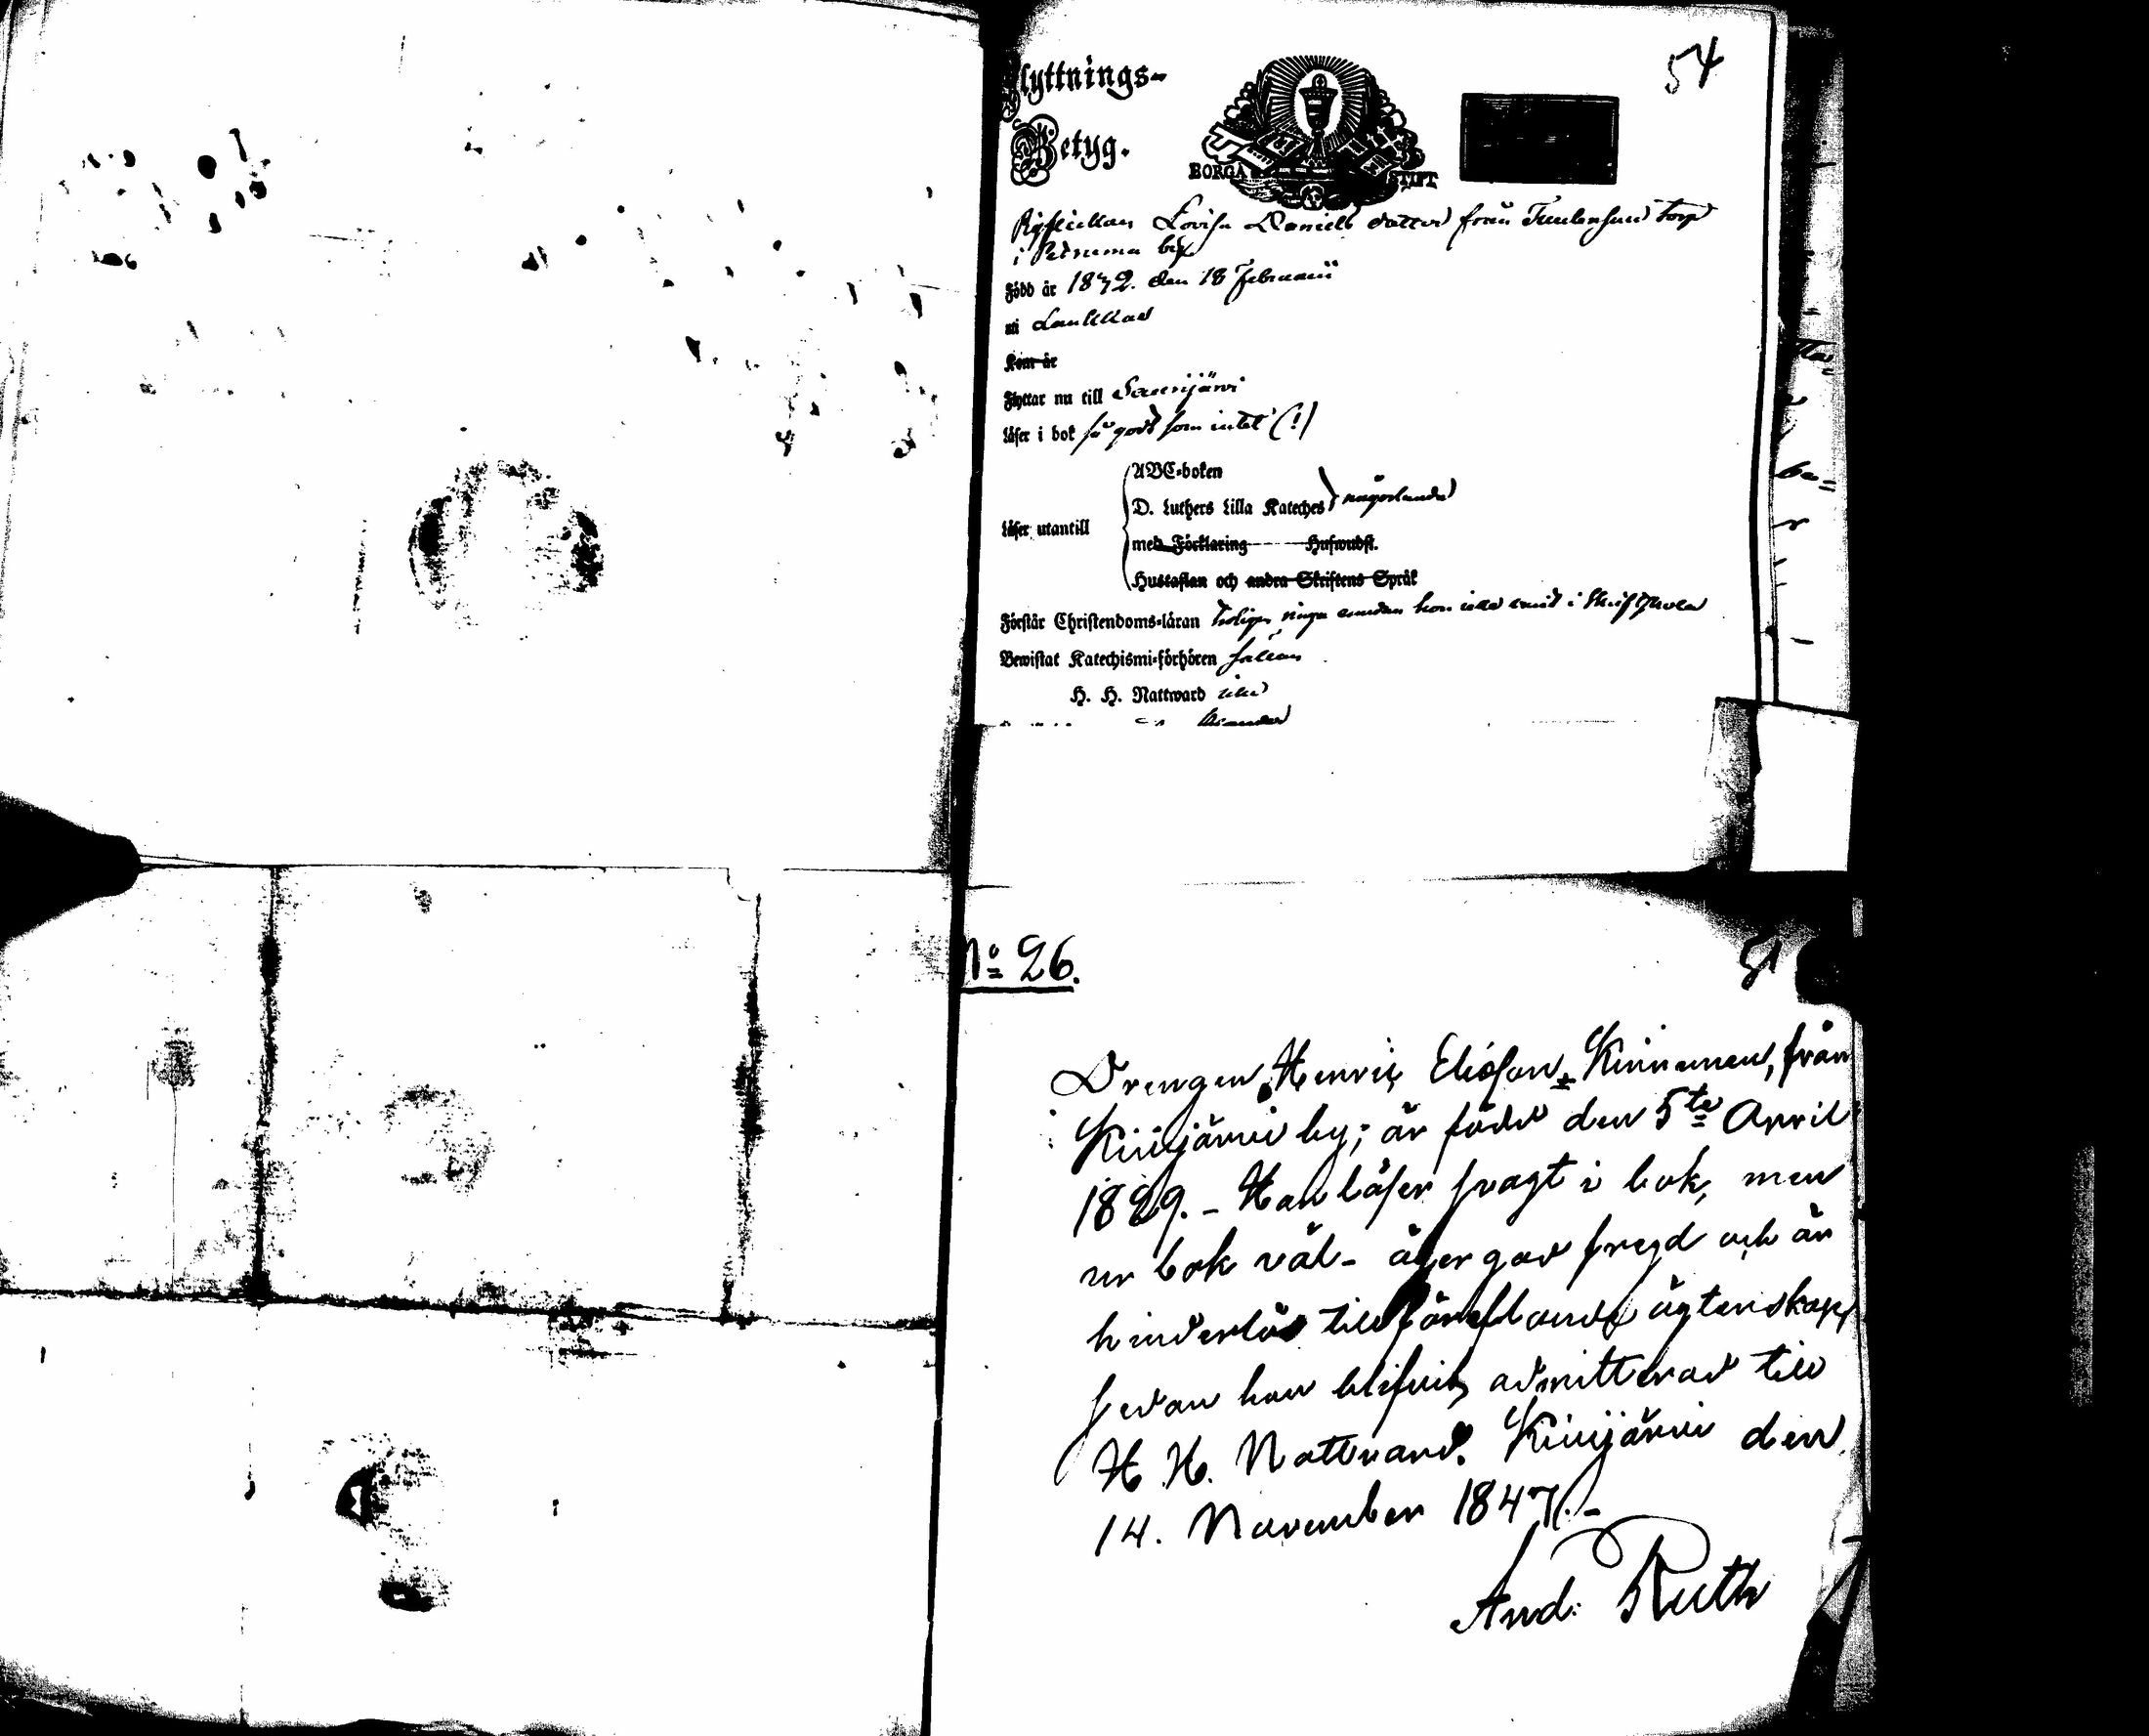 54
Flyttnings-
Betyg.
BORGÅ STIFT
Lovisa Daniels dotter från torp
i by
Född år 1832. den 18 Februarii
i Laukkas
Kom år
Flyttar nu till Saarijärvi
Läser i bok så godt som intet (!)
ABC-boken
D. Luthers Lilla Kateches någorlunda
Läser utantill
med Förklaring Huswudst.
Hustaflan och andra Skriftens Språk
Förstår Christendoms-läran hon icke varit i Skriftskola
Bewistat Katechismi-förhören sällan
H. H. Nattward icke
No 26.
51
Drengen Henric Eliasson Kinnunen, från
Kivijärvi by; är född den 5te April
1829. - Han läser svagt i bok, men
ur bok väl - äger god fregd och är
hinderlös till ägtenskap,
sedan han blifvit admitterad till
H. H. Nattvard. Kivijärvi den
14. November 1847. -
And: Ruth